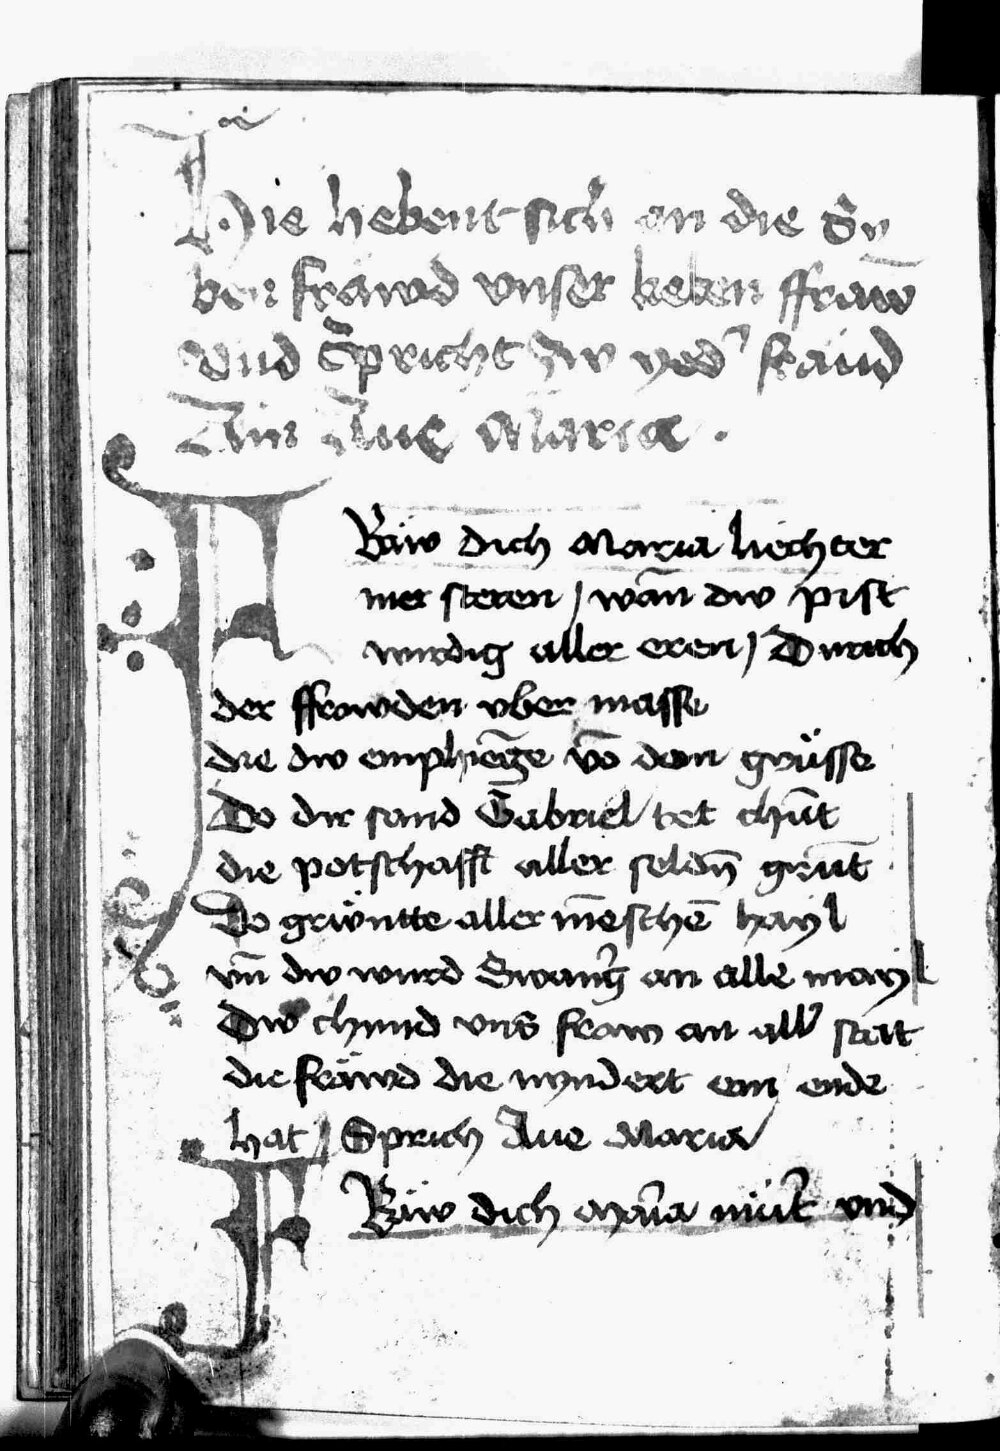 Hie hebent sich an die Sy
ben frawd vnser lieben ffraw̄
vnd Spricht zw yed' frawd
Ain Aue Maria .
FRäw dich Maria liechter
mer steren / wān dw pist
wirdig aller eren / Durich
der ffrowden vber masse
die dw emphienḡe vō dem grüsse
Do dir sand Gabriel tet chūt
die potschafft aller seldn̄ grūt
Do grüntte aller mēschē hayl
vn̄ dw wurd Swang' an alle mayl
Dw chund vns fraw an all' stat
die fräwd die nyndert ein ende
hat / Sprich Aue Maria
FRäw dich Maria müt' vnd